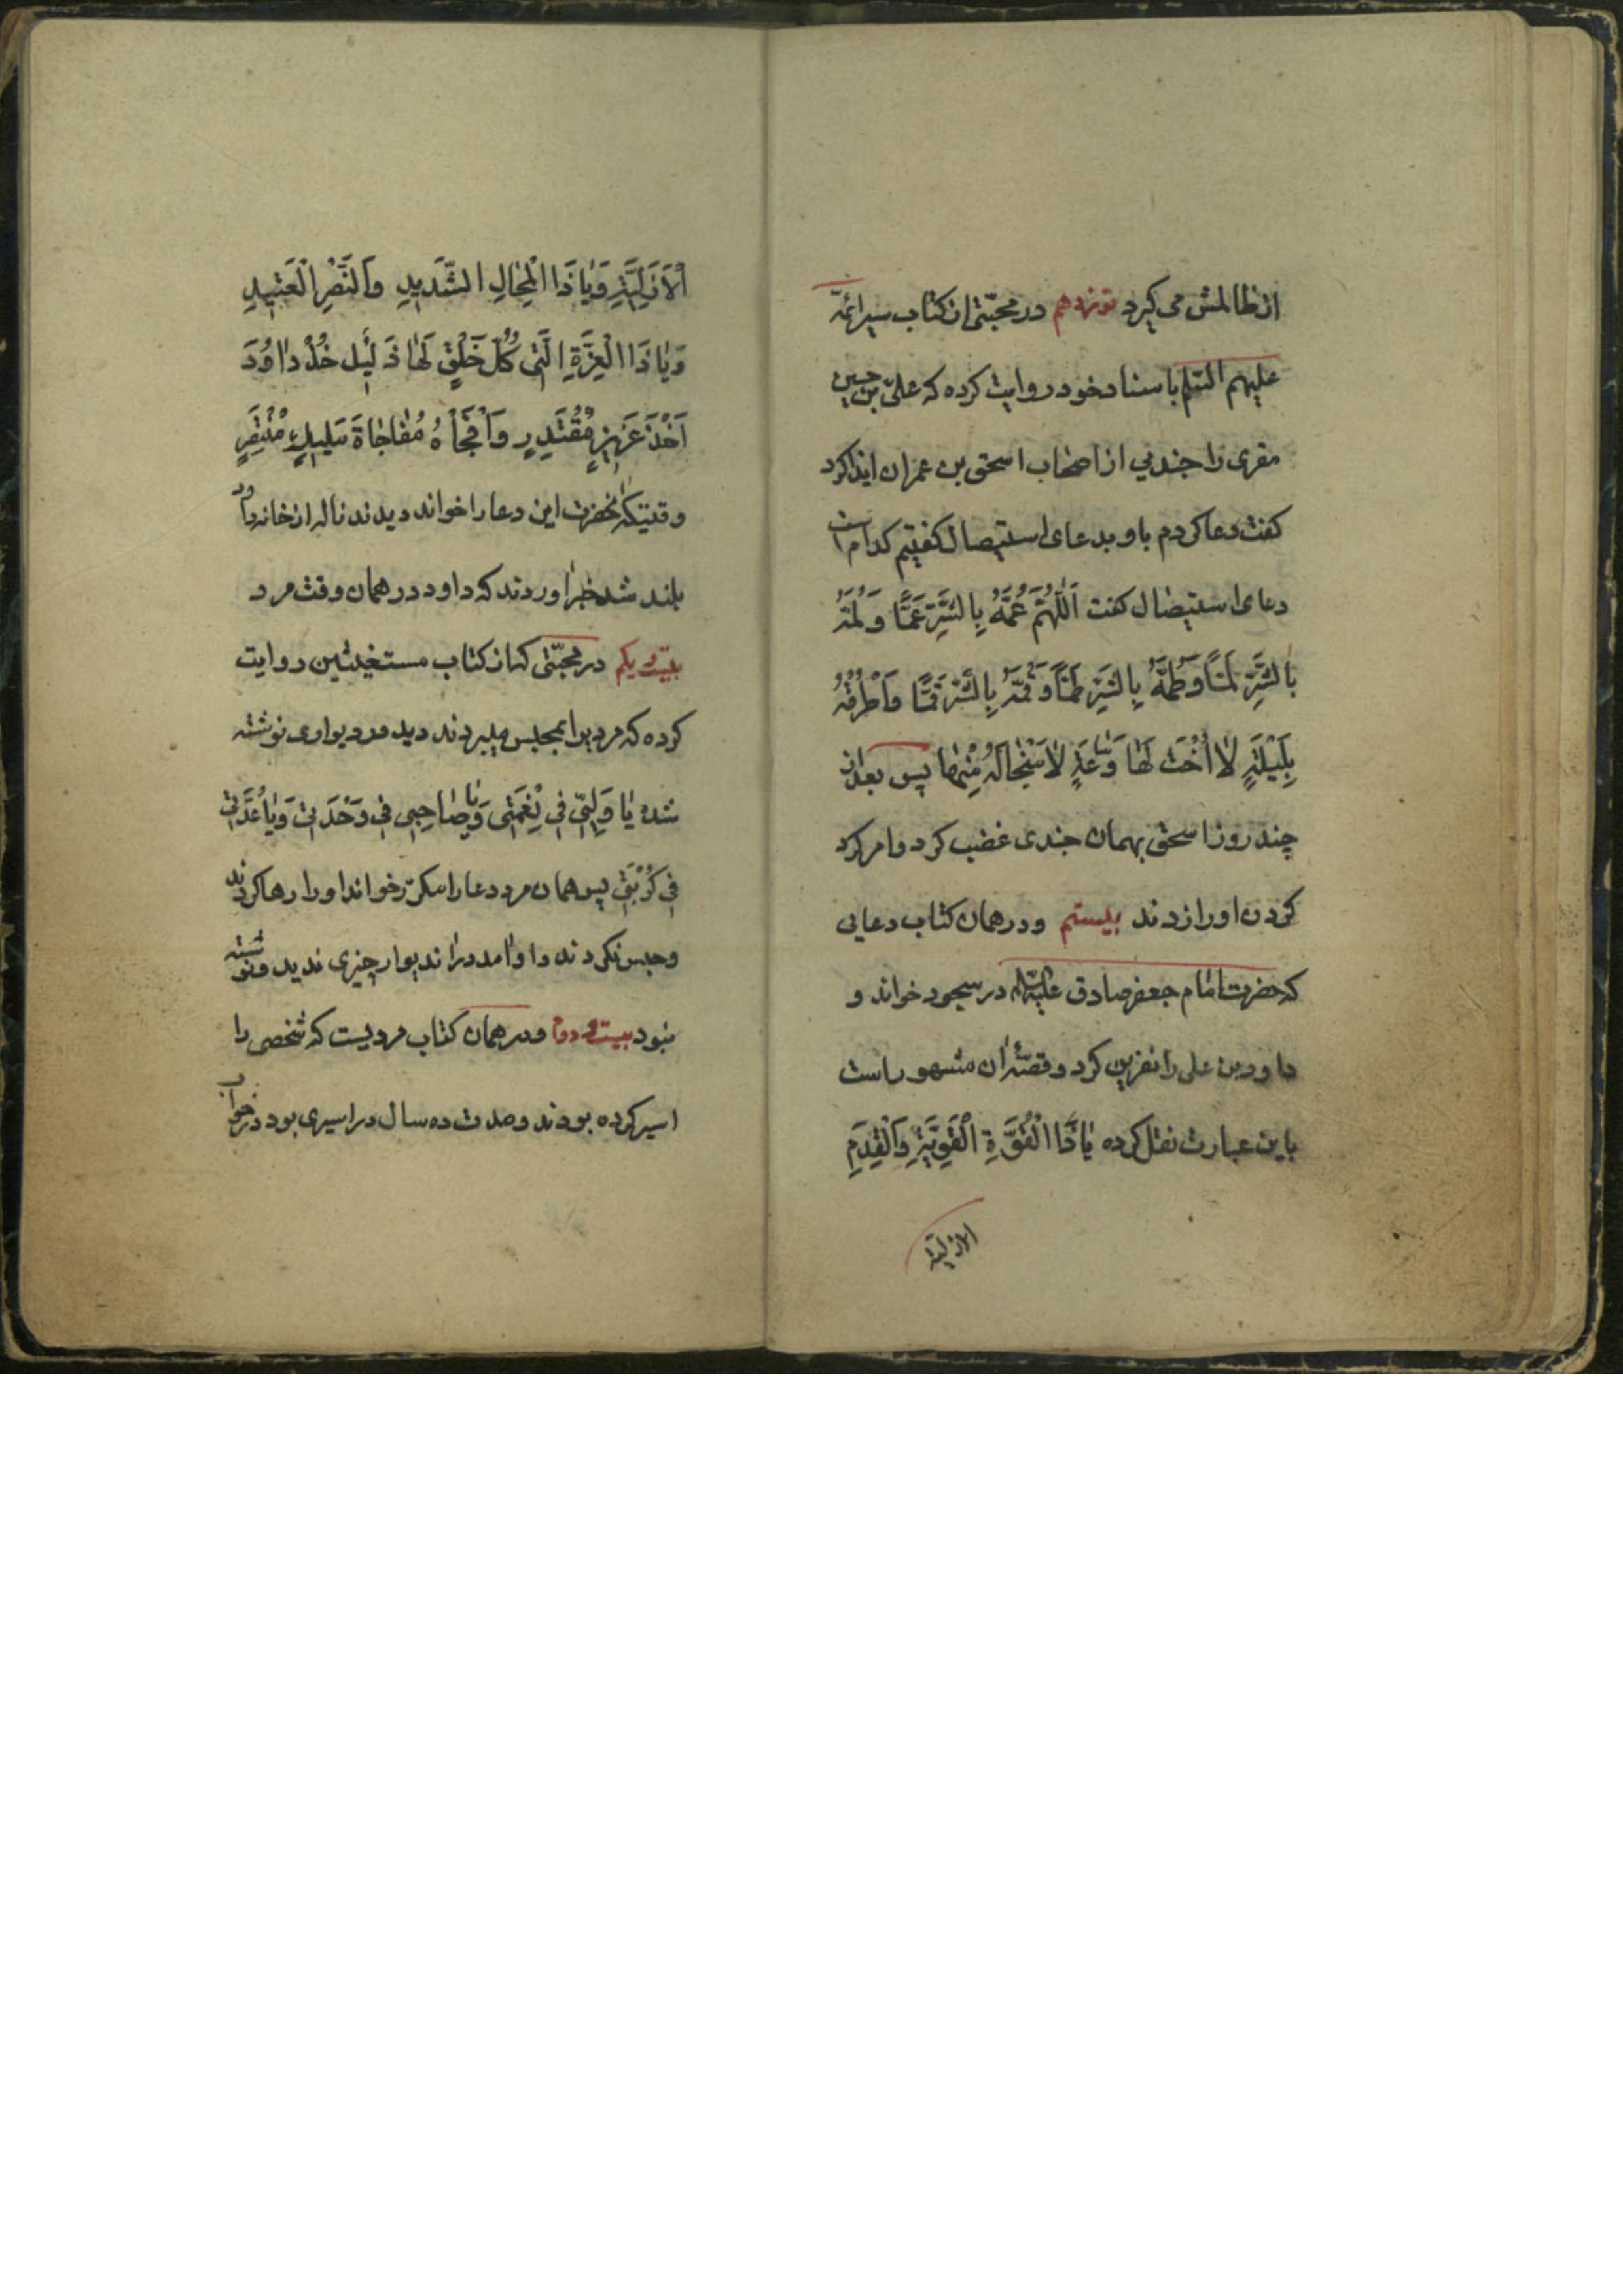 از ظالمش می کیرد نوزدهم در مجتنی از کتاب سیر ائمّه
علیهم السّلم باسناد خود روایت کرده که علیّ بن حسین
مقری را جندیی از اصحاب اسحق بن عمران ایذا کرد
کفت دعا کردم باو بدعای استیصال کفتیم کدام است
دعای استیصال کفت اَللّٰهُمَّ عُمَّهُ بِالشَّرِّ عَمًّا وَ لُمَّهُ
بِالشَّرِّ لَمًّا وَ طُمَّهُ بِالشَّرِّ طَمًّا وَ قُمَّهُ بِالشَّرِّ قَمًّا وَ اَطْرُقْهُ
بِلَیْلَةٍ لاٰ اُخْتَ لَهٰا وَ سٰاعَةٍ لاٰ مَنْجٰا لَهُ مِنْهٰا پس بعد از
چند روز اسحق بهمان جندی غضب کرد و امر کرد
کردن او را زدند بیستم و در همان کتاب دعایی
که حضرت امٰام جعفر صادق علیه السّلام در سجود خواند و
داود بن علی را نفرین کرد و قصّهٔ آن مشهور است
باین عبارت نقل کرده یٰا ذَا الْقُوَّةِ الْقَوِیَّةِ وَ الْقِدَمِ
الازلیّة
اْلاَزَلِیَّةِ وَ یٰا ذَا الْمِحٰالِ الشَّدیٖدِ وَ النَّصْرِ الْعَتیٖدِ
وَ یٰا ذَا الْعِزَّةِ الَّتی کُلُّ خَلْقٍ لَهٰا ذَلیٖل خُذْ دٰاوُدَ
اَخْذَ عَزیٖزٍ مُقْتَدِرٍ وَ اَفْجَأْهُ مُفٰاجٰاةَ مَلیٖلٍ مُنْتَصِرٍ
وقتیکه آنحضرت این دعا را خواند دیدند ناله از خانه داود
بلند شد خبر آوردند که داود در همان وقت مرد
بیست و یکم در مجتنی که از کتاب مستغیثین روایت
کرده که مردیرا بمجلس میبردند دید در دیواری نوشته
شده یٰا وَلِیّی فی نِعْمَتی وَ یٰا صٰاحِبی فی وَحْدَتی وَ یٰا عُدَّتی
فی کُرْبَتی پس همان مرد دعا را مکرّر خواند او را رها کردند
و حبس نکردند و او آمد در آندیوار چیزی ندید و نوشته
نبود بیست و دوم و در همان کتاب مرویست که شخصی را
اسیر کرده بودند و مدت ده سال در اسیری بود در خواب